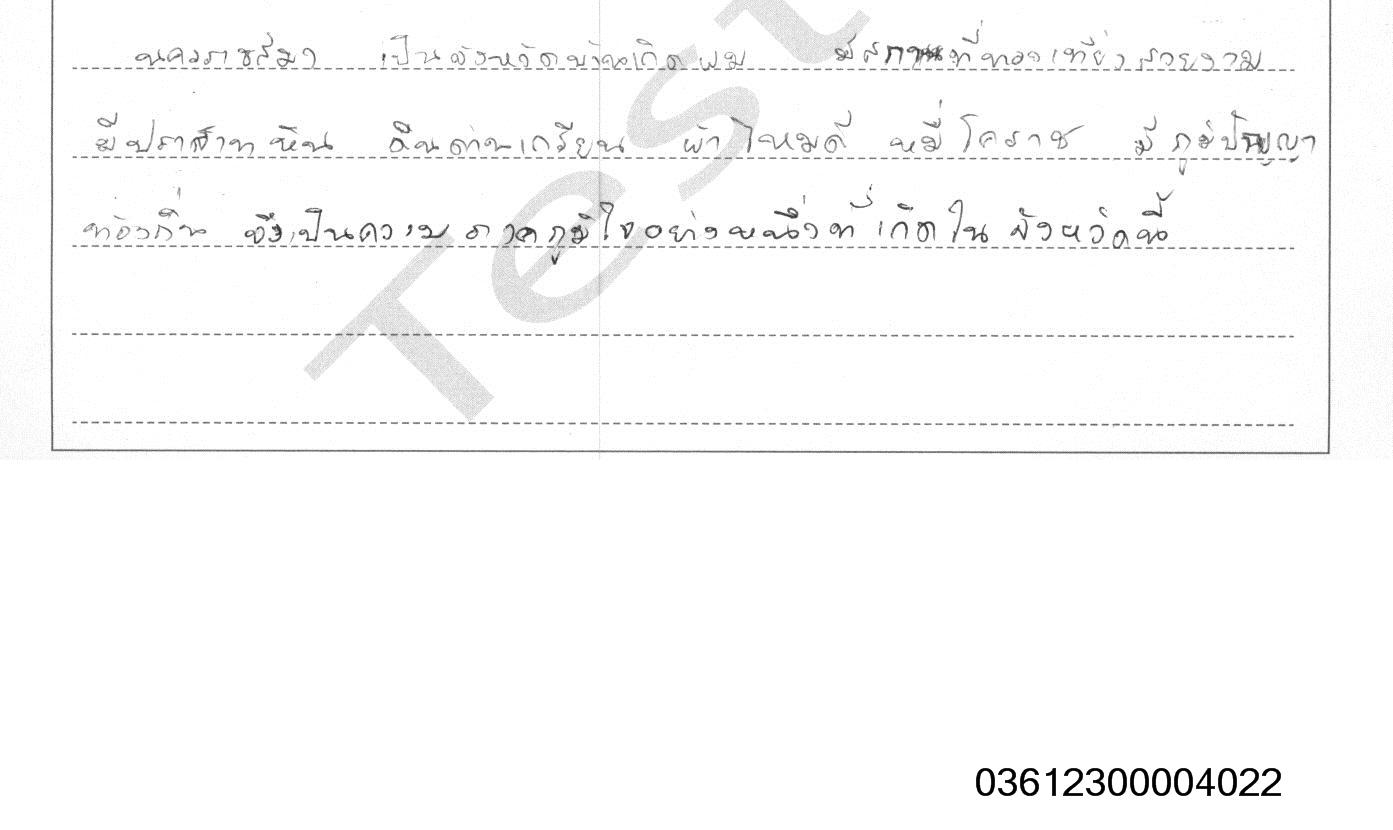 นครราชสีมา เป็นจังหวัดบ้านเกิดผม มีสถานที่ท่องเที่ยวสวยงาม
มีปราสาทหิน ดินด่านเกวียน ผ้าไหมดี หมี่โคราช มีภูมิปัญญา
ท้องถิ่น จึงเป็นความภาคภูมิใจอย่างหนึ่งที่เกิดใน จังหวัดนี้
Test
03612300004022